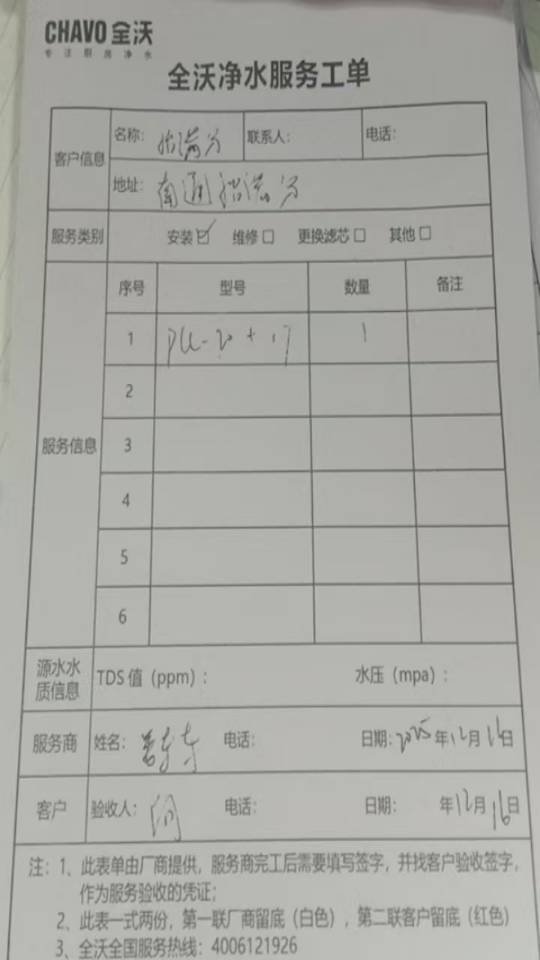 CHAVO 全沃
专注厨房净水
全沃净水服务工单
客户信息 名称: 联系人: 电话:
地址: 南通
服务类别 安装☑ 维修☐ 更换滤芯☐ 其他☐
序号 型号 数量 备注
1 1
2
服务信息 3
4
5
6
源水水质信息 TDS 值（ppm）: 水压（mpa）:
服务商 姓名: 电话: 日期: 2025年12月16日
客户 验收人: 电话: 日期: 年12月16日
注: 1、此表单由厂商提供，服务商完工后需要填写签字，并找客户验收签字，
作为服务验收的凭证;
2、此表一式两份，第一联厂商留底（白色），第二联客户留底（红色）
3、全沃全国服务热线: 4006121926